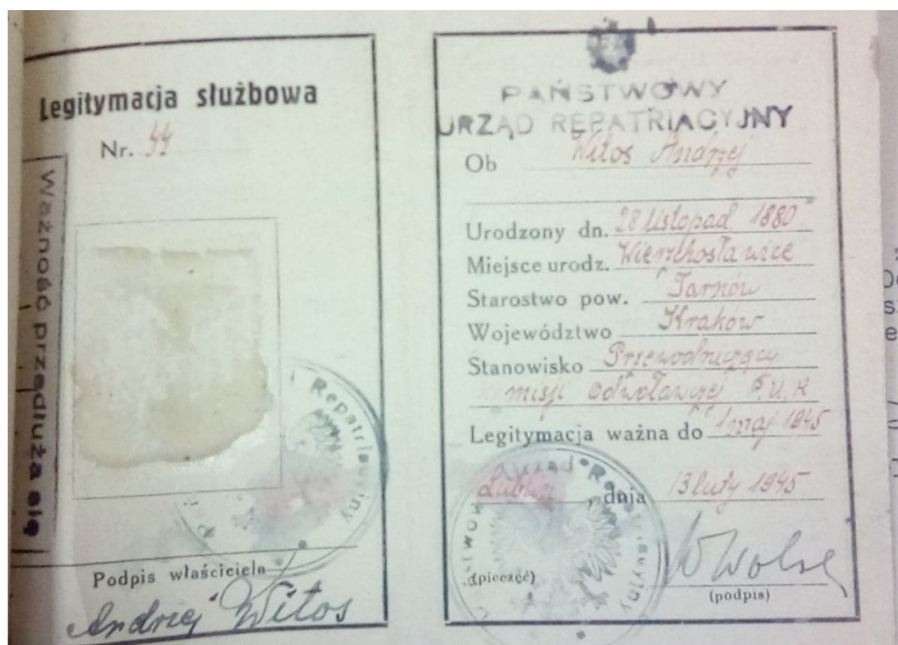 Legitymacja służbowa
Nr. 44
Ważność przedłuża się
Repatriacyjny
Podpis właściciela
Andrzej Witos
PAŃSTWOWY
URZĄD REPATRIACYJNY
Ob Witos Andrzej
Urodzony dn. 28 listopad 1880
Miejsce urodz. Wierzchosławice
Starostwo pow. Tarnów
Województwo Kraków
Stanowisko Przewodniczący
Komisji Odwoławczej P.U.R
Legitymacja ważna do 1 maj 1945
Lublin, dnia 13 luty 1945
Urząd
(pieczęć)
(podpis)